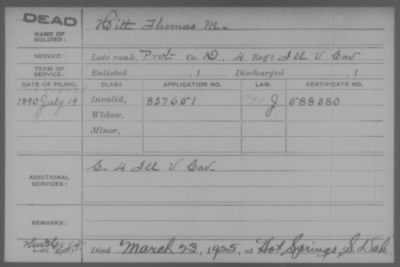 DEAD
NAME OF SOLDIER: Hitt Thomas M.
SERVICE: Late rank, Pvt Co. D, 4 Reg't Ill V Cav
TERM OF SERVICE: Enlisted , 1 Discharged , 1
DATE OF FILING. CLASS. APPLICATION NO. LAW. CERTIFICATE NO.
1890 July 19 Invalid, 827651 J 588280
Widow,
Minor,
ADDITIONAL SERVICES: C. 4 Ill V Cav.
REMARKS:
Died March 23, 1925, at Hot Springs, S. Dak.